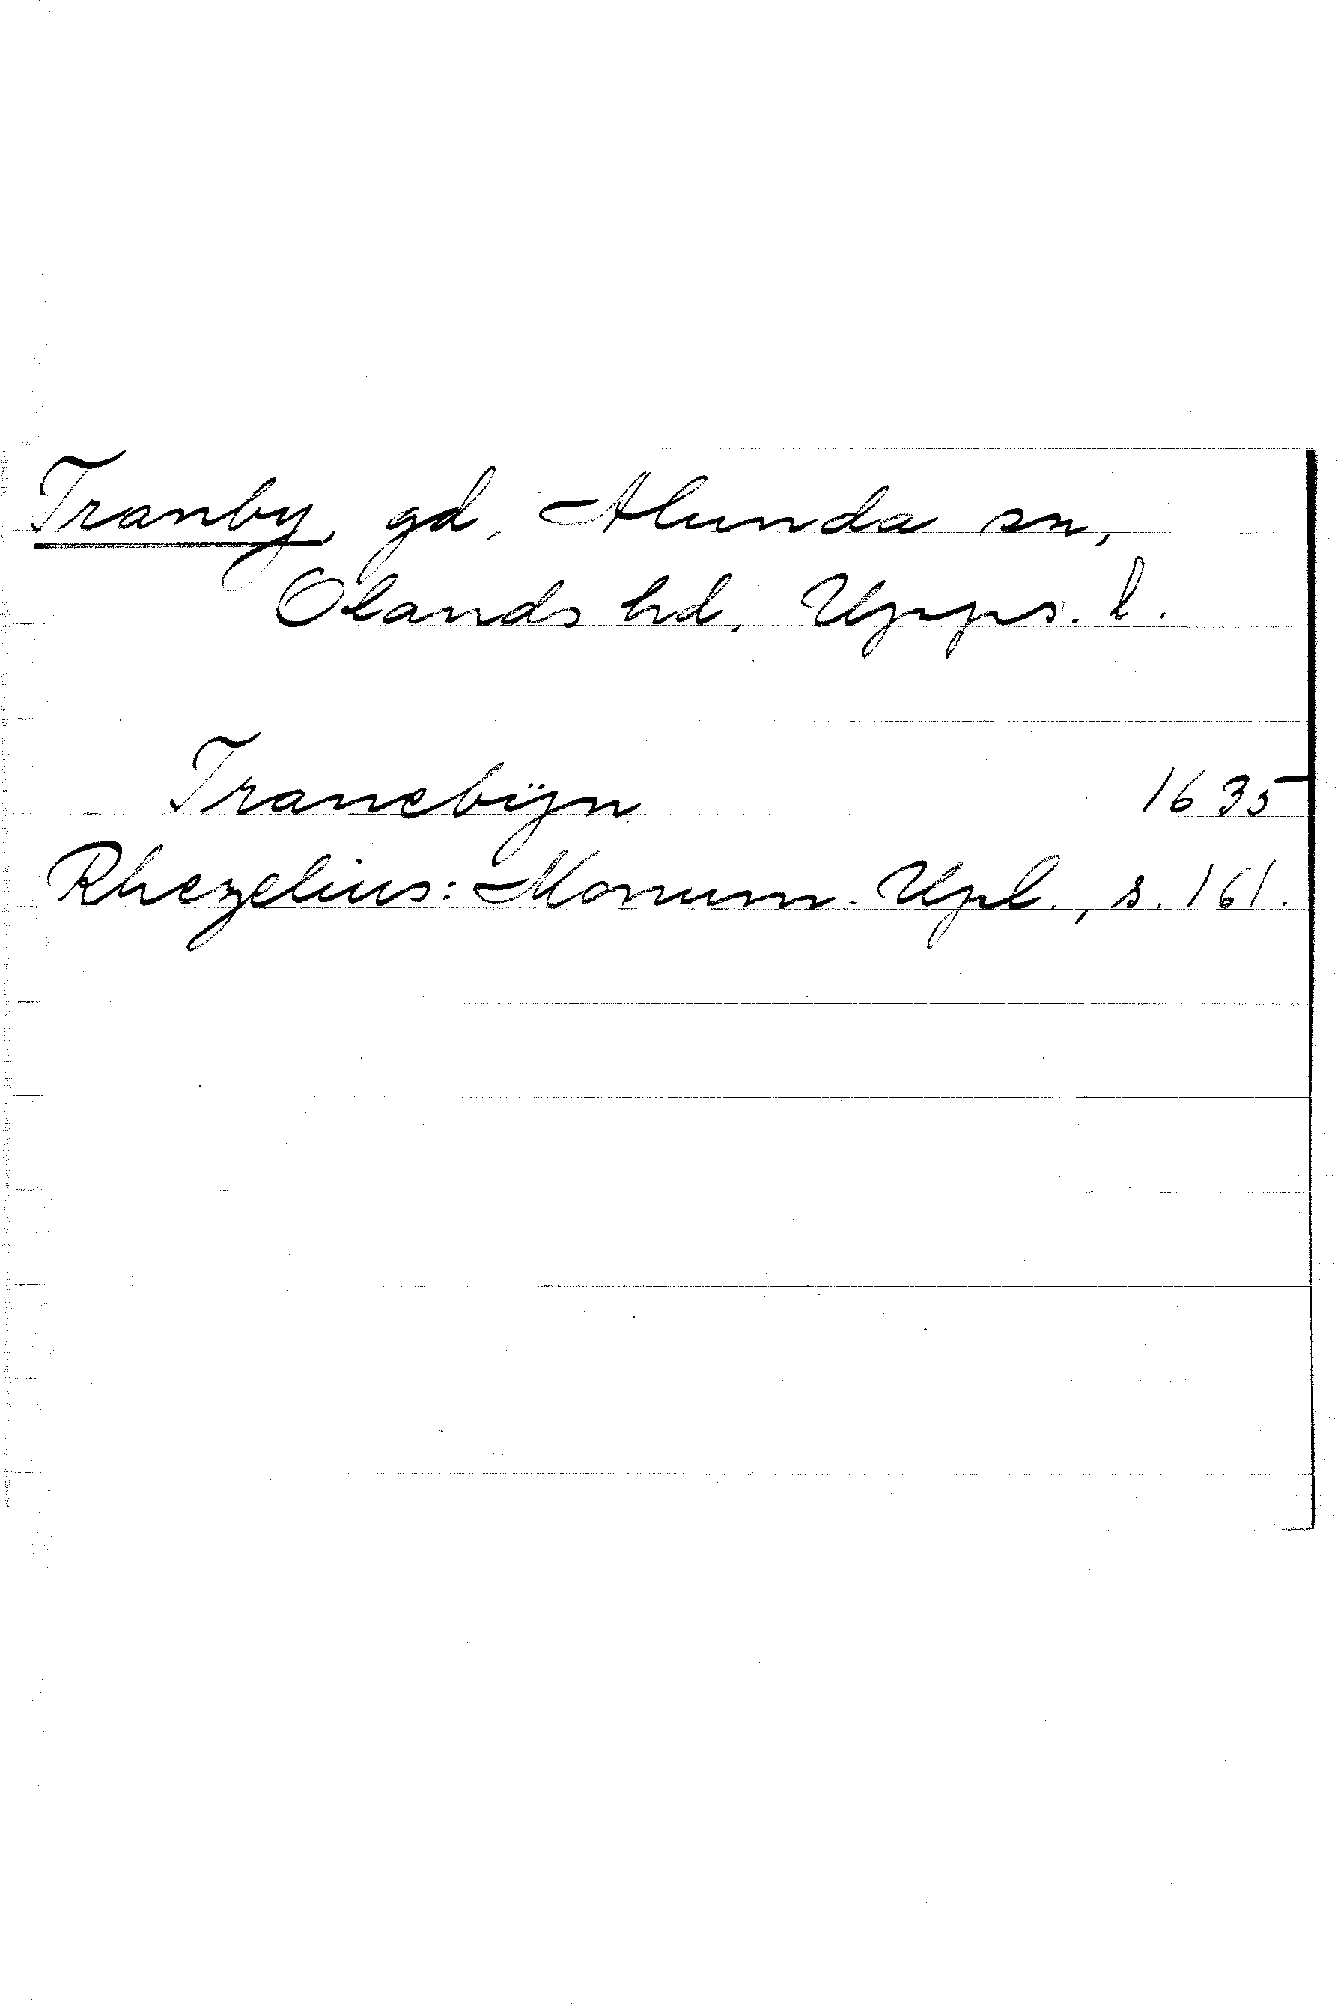 Tranby, gd, Alunda sn,
Olands hd, Upps. l.
Tranebÿn 1635
Rhezelius: Monum. Upl., s. 161.